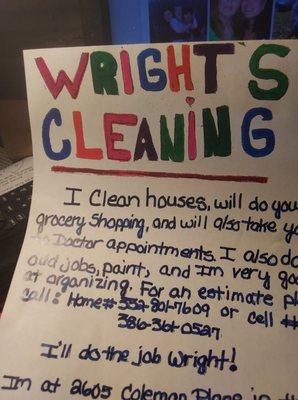 WRIGHTS
CLEANING
I Clean houses, will do you
grocery shopping, and will also take yo
to Doctor appointments. I also do
odd jobs, paint, and Im very go
at organizing. For an estimate pl
call: Home# 352-801-7609 or cell #
386-361-0527
I'll do the job Wright!
Im at 2605 Coleman Place in th